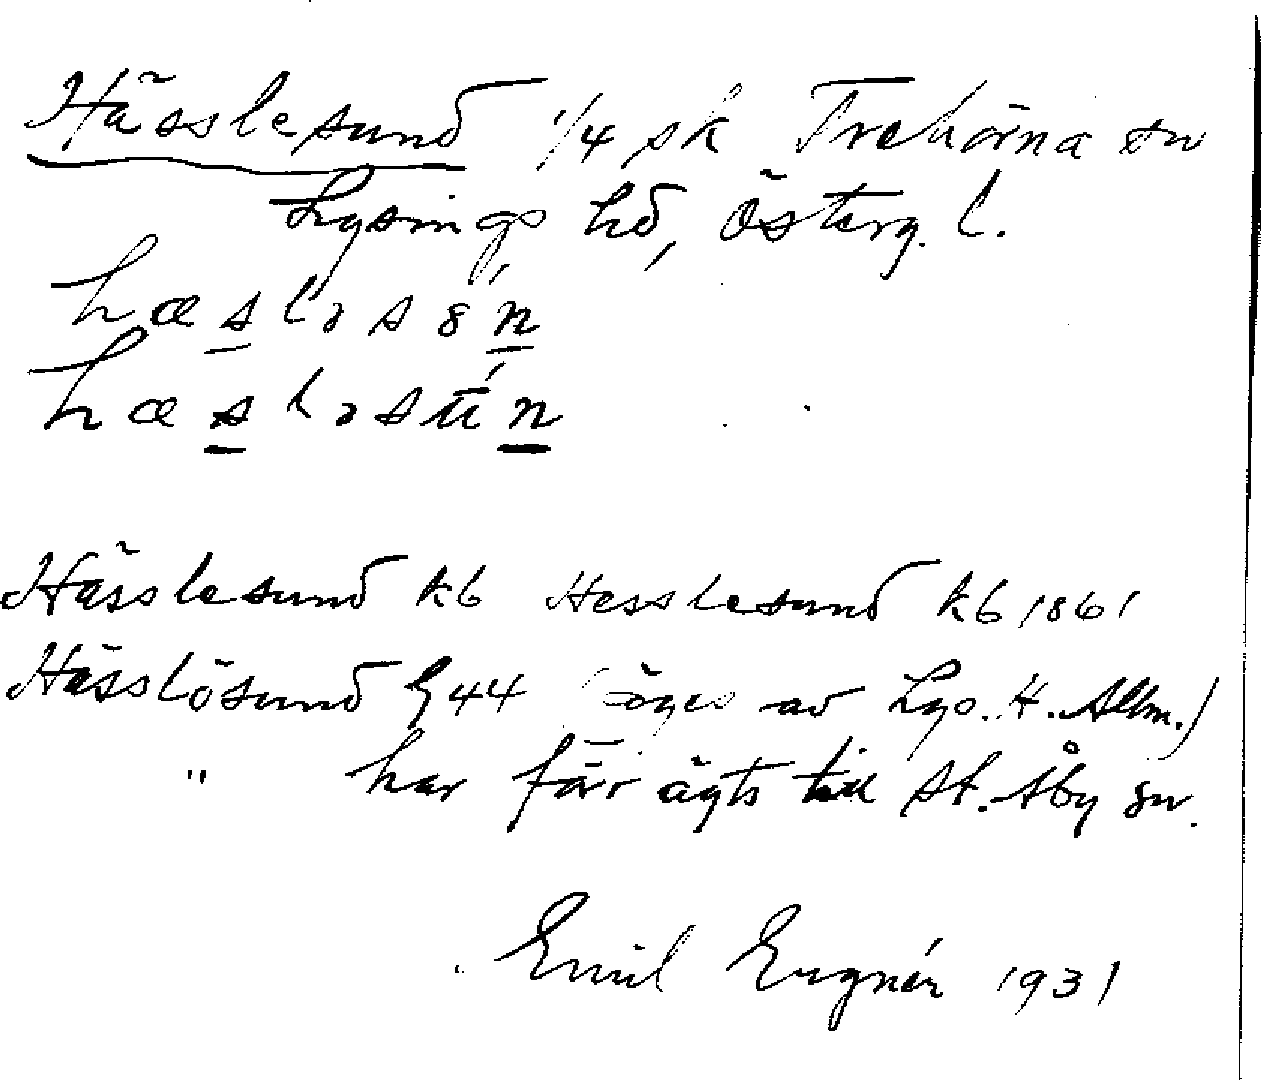 Hässlesund 1/4 sk Trehörna sn
Lysings hd, Österg. l.
hæslɘsȣ́n
hæslɘsú̄n
Hässlesund kb Hesslesund kb 1861
Hässlösund G 44 (äges av Lgs. H. Allm.)
" har förr ägts till St. Åby sn.
Emil Engnér 1931